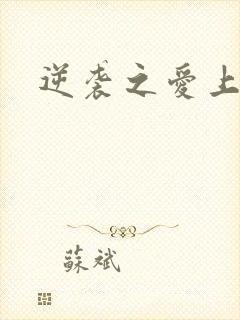 逆袭之愛上
蘇斌